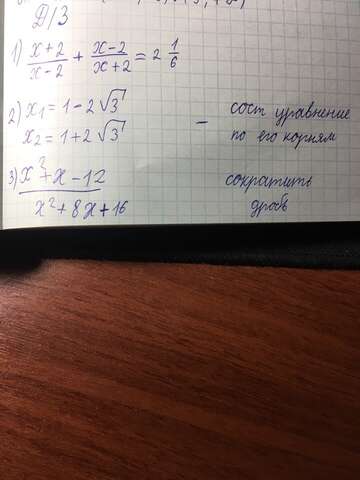 Д/З
1) x+2/x-2 + x-2/x+2 = 2 1/6
2) x₁ = 1-2√3
x₂ = 1+2√3
— сост уравнение
по его корням
3) x²+x-12/x²+8x+16
сократить
дробь